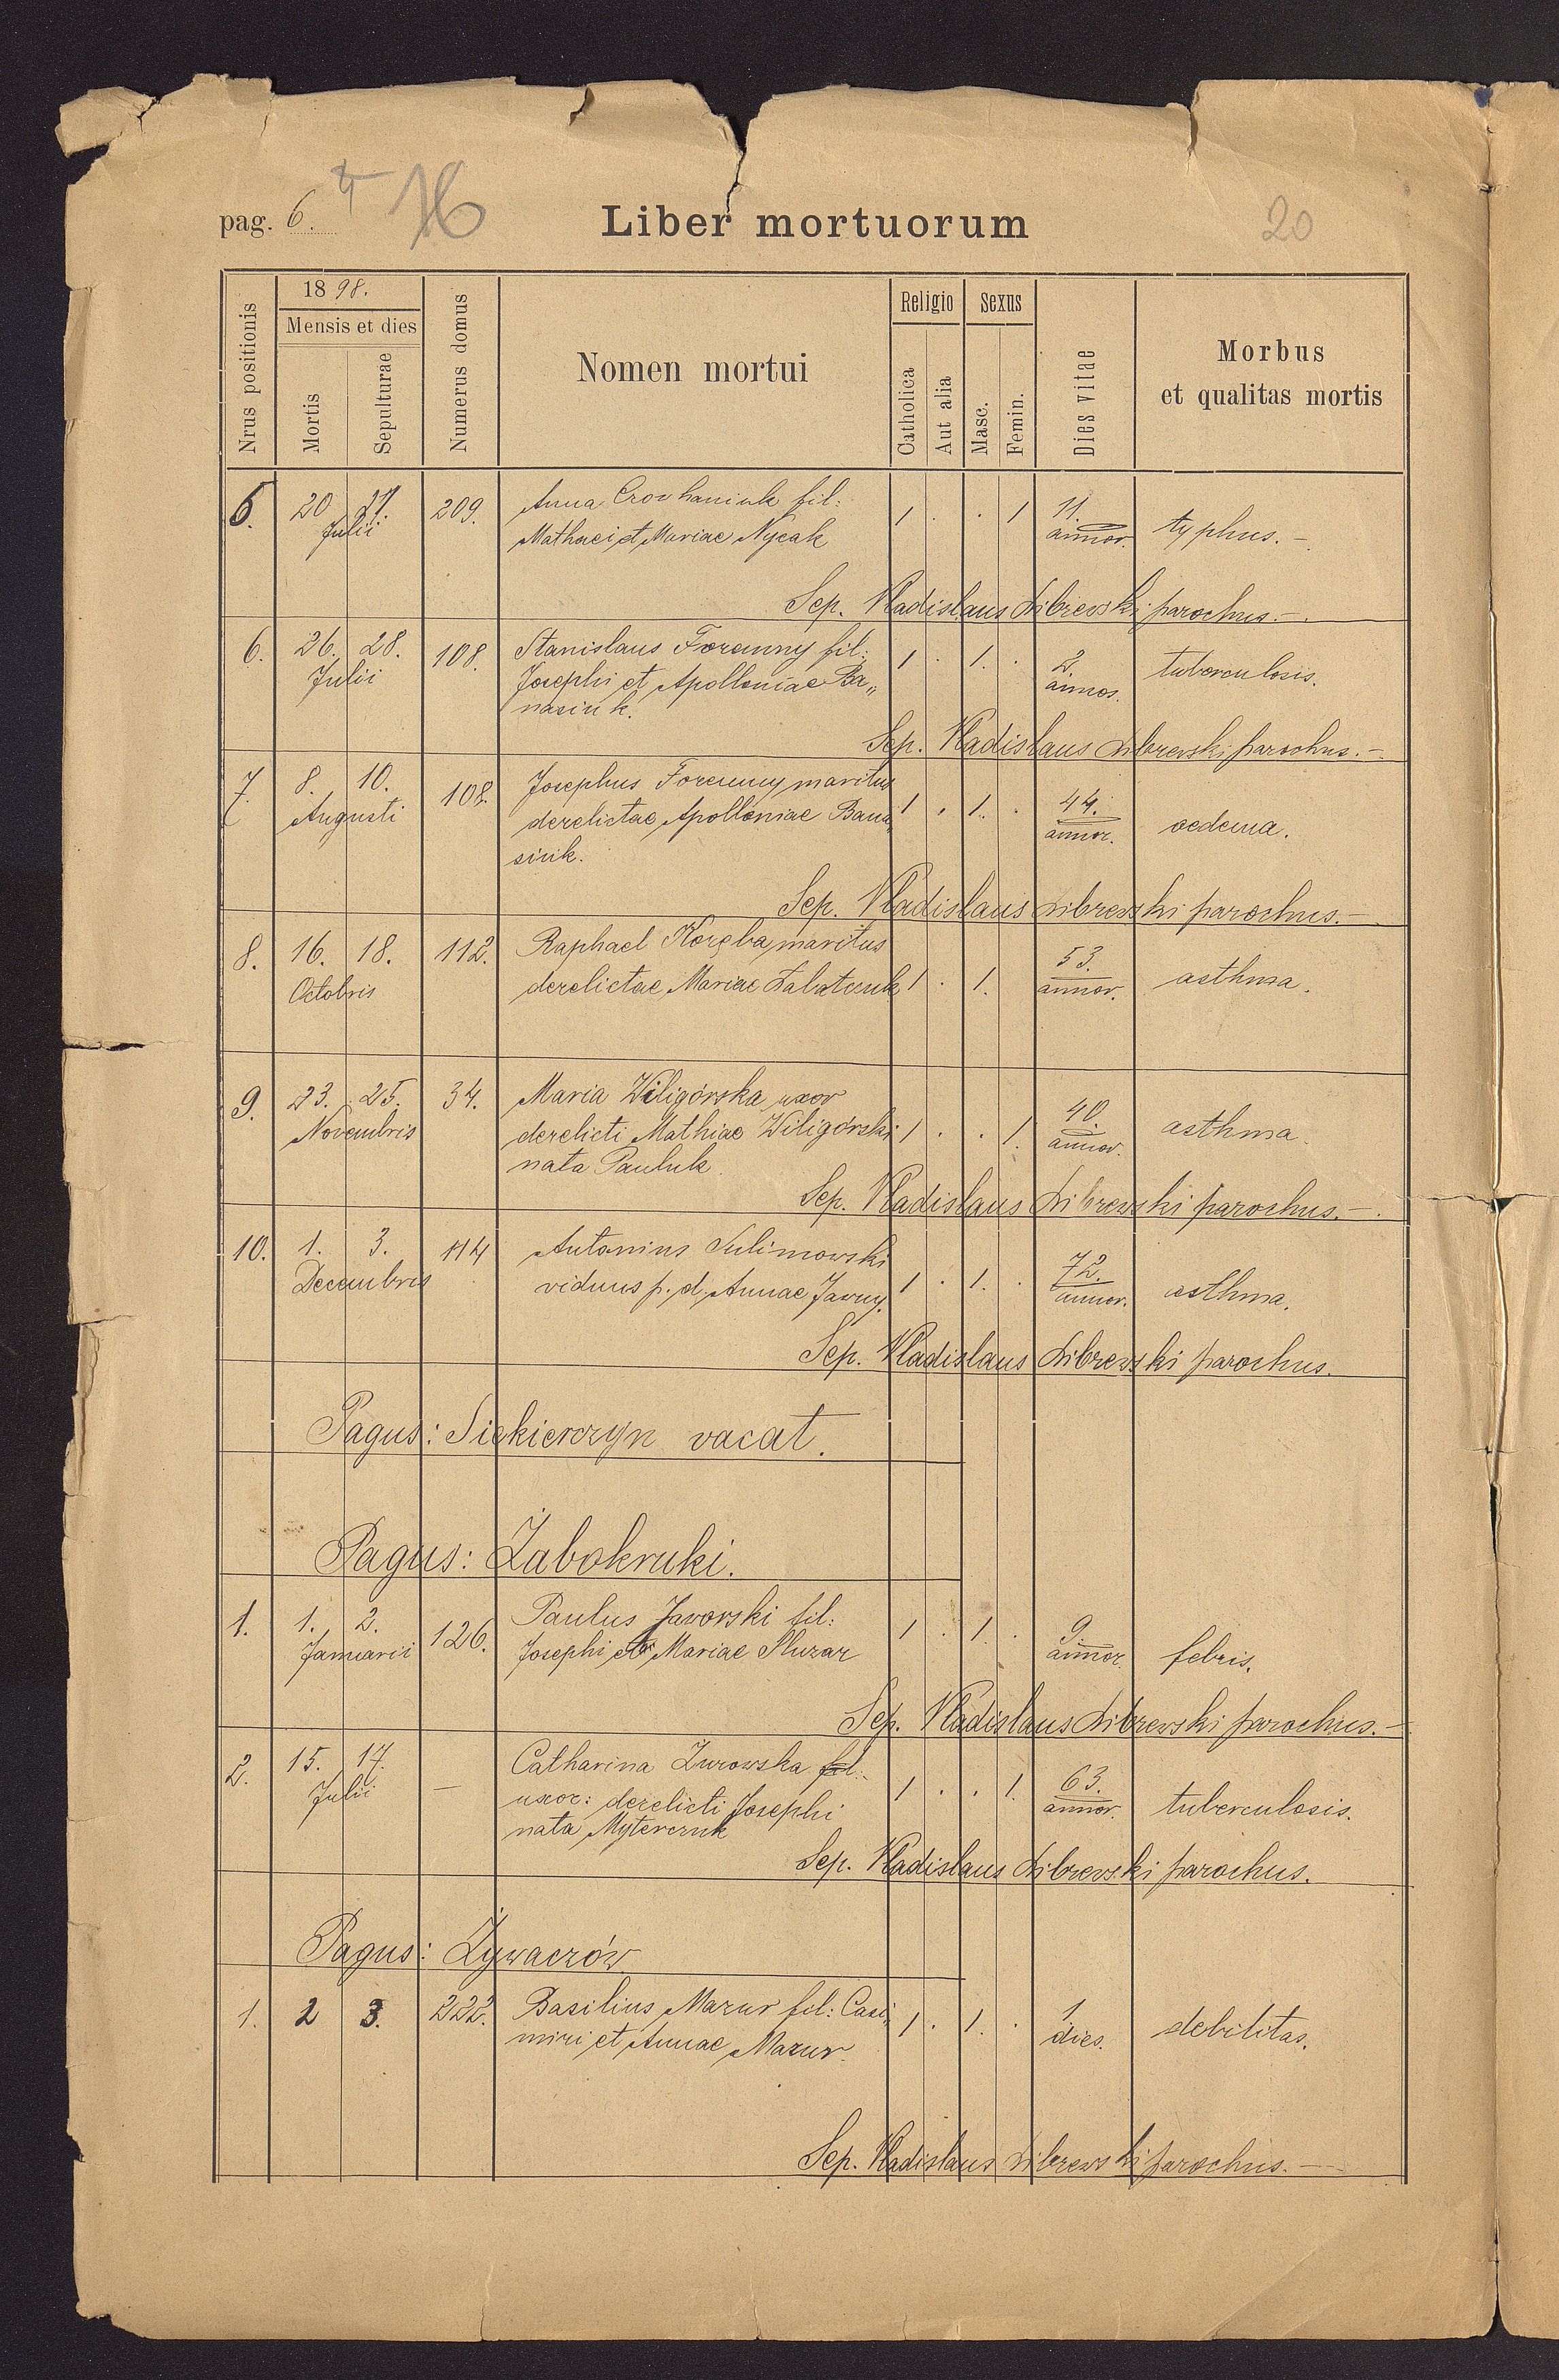 pag. 6.
20
Liber mortuorum
Nrus positionis
1898.
Mensis et dies
Mortis
Sepulturae
Numerus domus
Nomen mortui
Religio
Catholica
Aut alia
Sexus
Masc.
Femin.
Dies vitae
Morbus
et qualitas mortis
5. 20 21. 209. Anna fil: 1 . . 1 11.
Julii Mathaei et Mariae Nycak annor. typhus. –
Sep. Vladislaus Librewski parochus. –
6. 26. 28. 108. Stanislaus Forenny fil: 1 . 1. . 2. tuberculosis.
Julii Josephi et Apolloniae Ba„ annos.
nasiuk.
Sep. Vladislaus Librewski parochus. –
7. 8. 10. 108. Josephus Forenny maritus 1 . 1. . 44.
Augusti derelictae Apolloniae Bana„ annor. oedema.
siuk.
Sep. Vladislaus Librewski parochus. –
8. 16. 18. 112. Raphael Koręba maritus 53.
Octobris derelictae Mariae Labatczuk 1 . 1. annor. asthma.
9. 23. 25. 34. Maria Wiligórska uxor 40.
Novembris derelicti Mathiae Wiligórski 1 . . 1. annor. asthma.
nata Pauluk.
Sep. Vladislaus Librewski parochus. –
10. 1. 3. 114 Antonius Sulimowski 72.
Decembris viduus p. d. Annae Jawny. 1 . 1. . annor. asthma.
Sep. Vladislaus Librewski parochus.
Pagus: Siekierczyn vacat.
Pagus: Żabokruki.
1. 1. 2. 126. Paulus Jaworski fil: 1 . 1. . 9.
Januarii Josephi et Mariae Sluzar annor. febris.
Sep. Vladislaus Librewski parochus. –
2. 15. 17. – Catharina Zurowska fil: 1 . . 1. 63.
Julii uxor: derelicti Josephi annor. tuberculosis.
nata Myterczuk
Sep. Vladislaus Librewski parochus.
Pagus: Żywaczów
1. 2 3. 222. Basilius Mazur fil: Casi„ 1 . 1. . 1
miri et Annae Mazur. dies. debilitas.
Sep. Vladislaus Librewski parochus. –